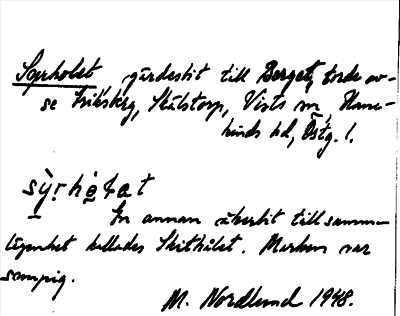 Syrholet, gärdestit till Berget, torde av-
se Eriksberg, Skälstorp, Vists sn, Hane-
kinds hd, Östg. l.
sỳrhó̤ɫat
En annan åkerbit till samma
lägenhet kallades Skithålet. Marken var
sumpig.
M. Nordlund 1948.